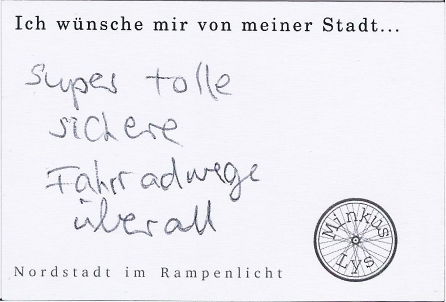 Ich wünsche mir von meiner Stadt...
super tolle
sichere
Fahrradwege
überall
Minkus
Lys
Nordstadt im Rampenlicht